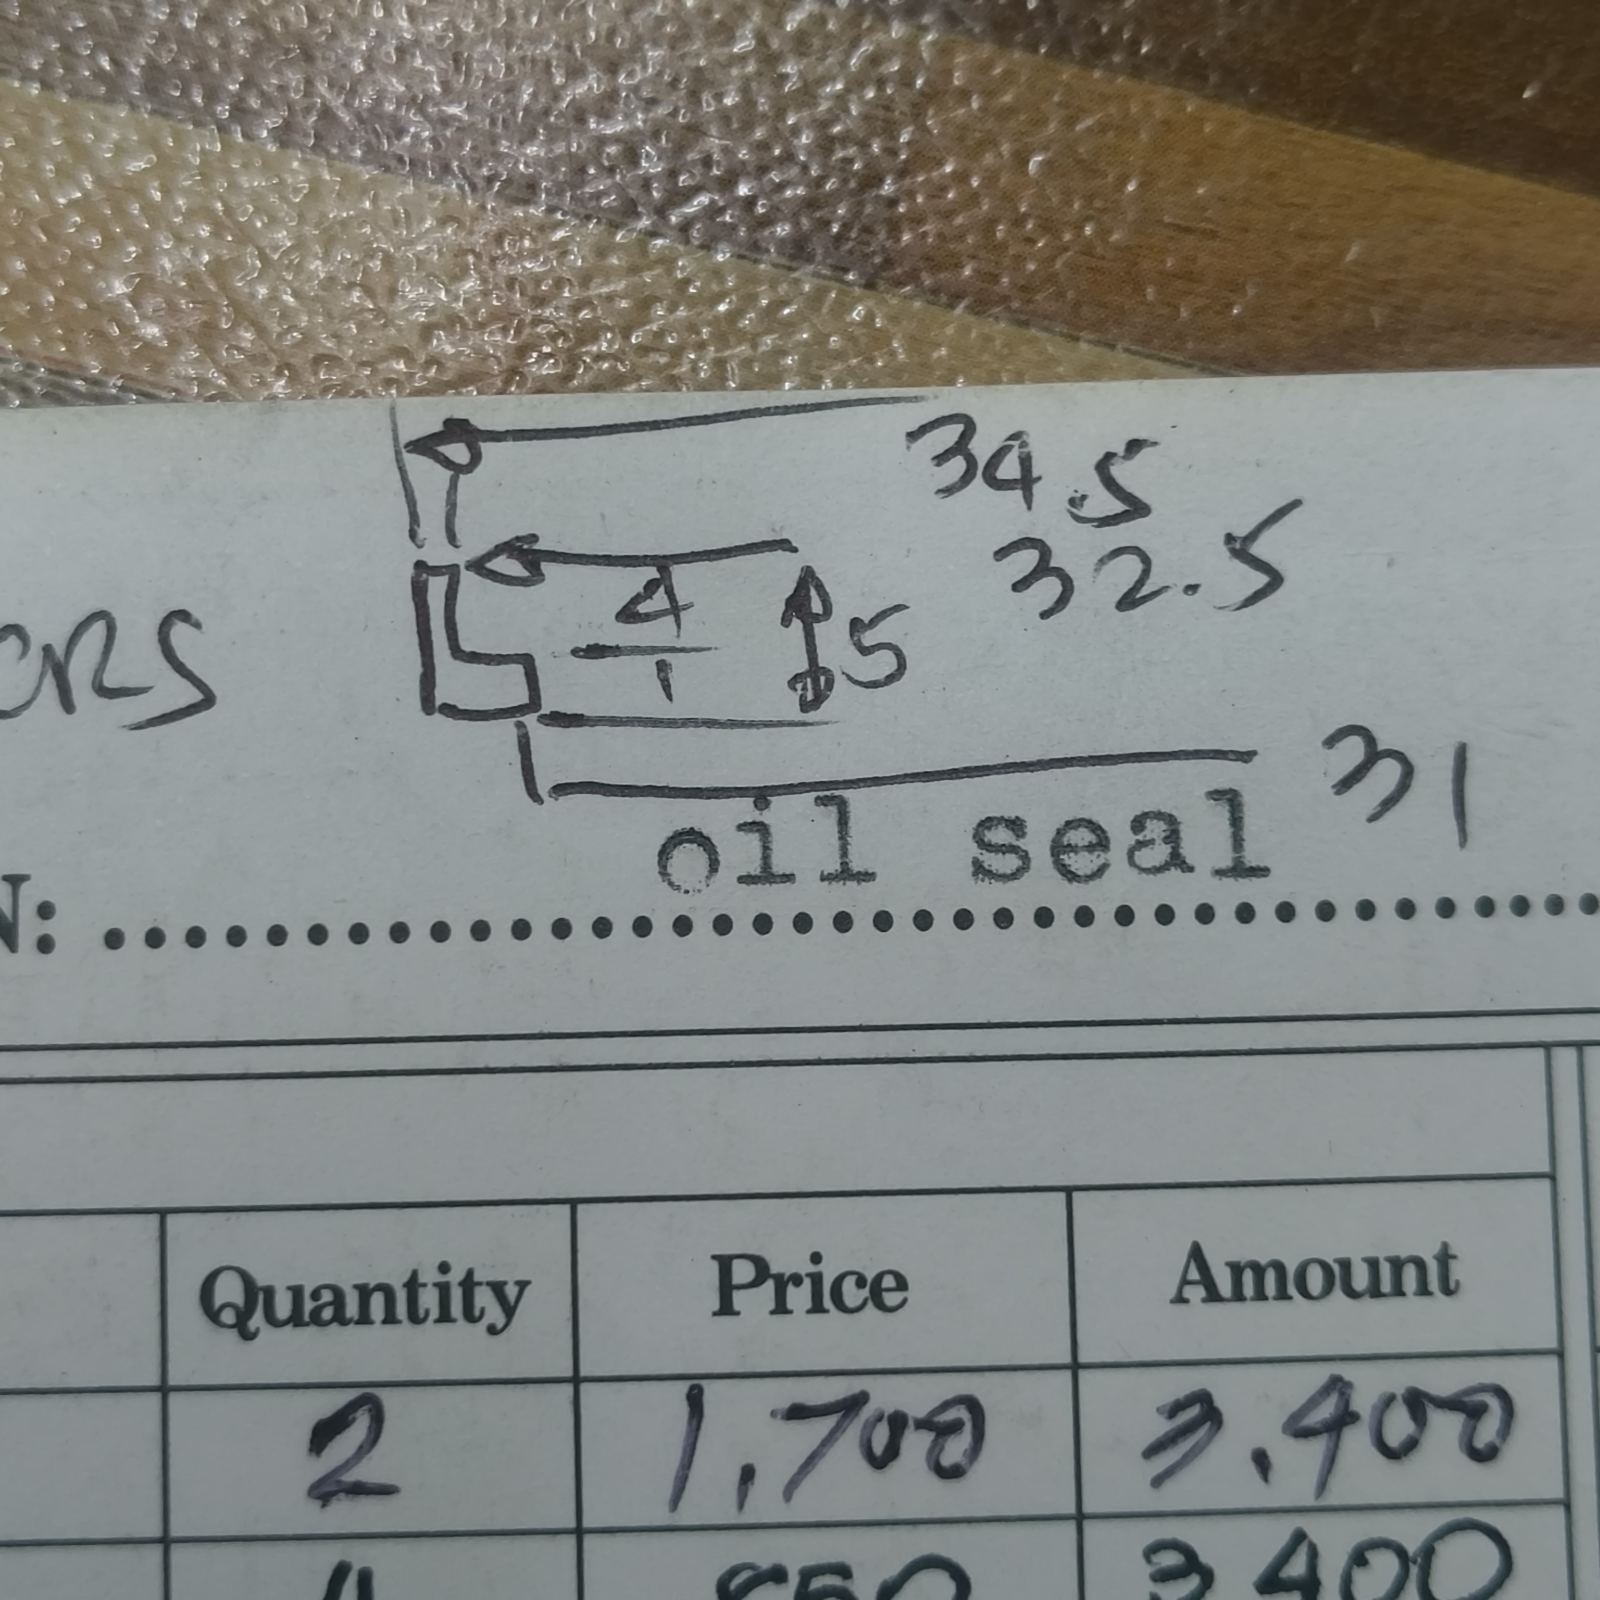 34.5
32.5
4
5
1
31
oil seal
Quantity Price Amount
2 1,700 3,400
3400